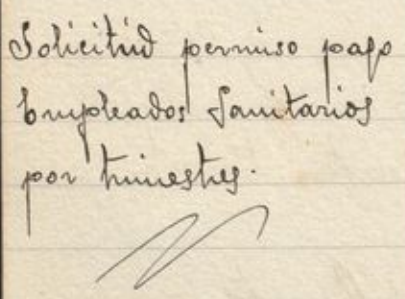 Solicitud permiso pago
Empleados Sanitarios
por trimestres.